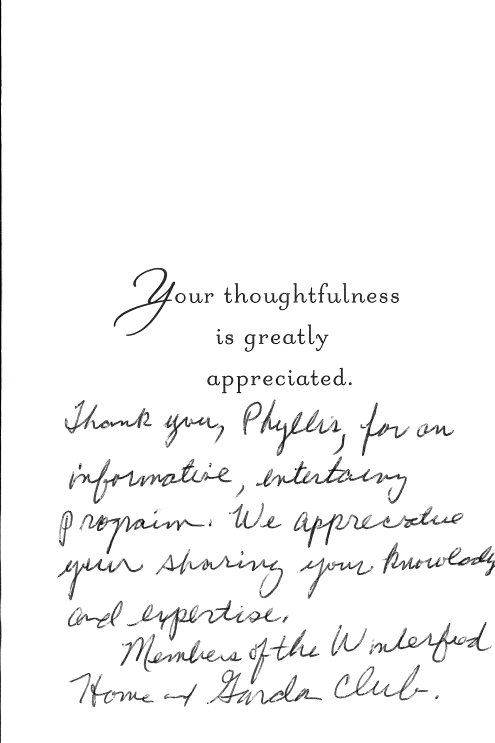 Your thoughtfulness
is greatly
appreciated.
Thank you, Phyllis, for an
informative, entertaing
program. We appreciative
your sharing your knowledg
and expertise.
Members of the Winterfred
Home and Garden Club.